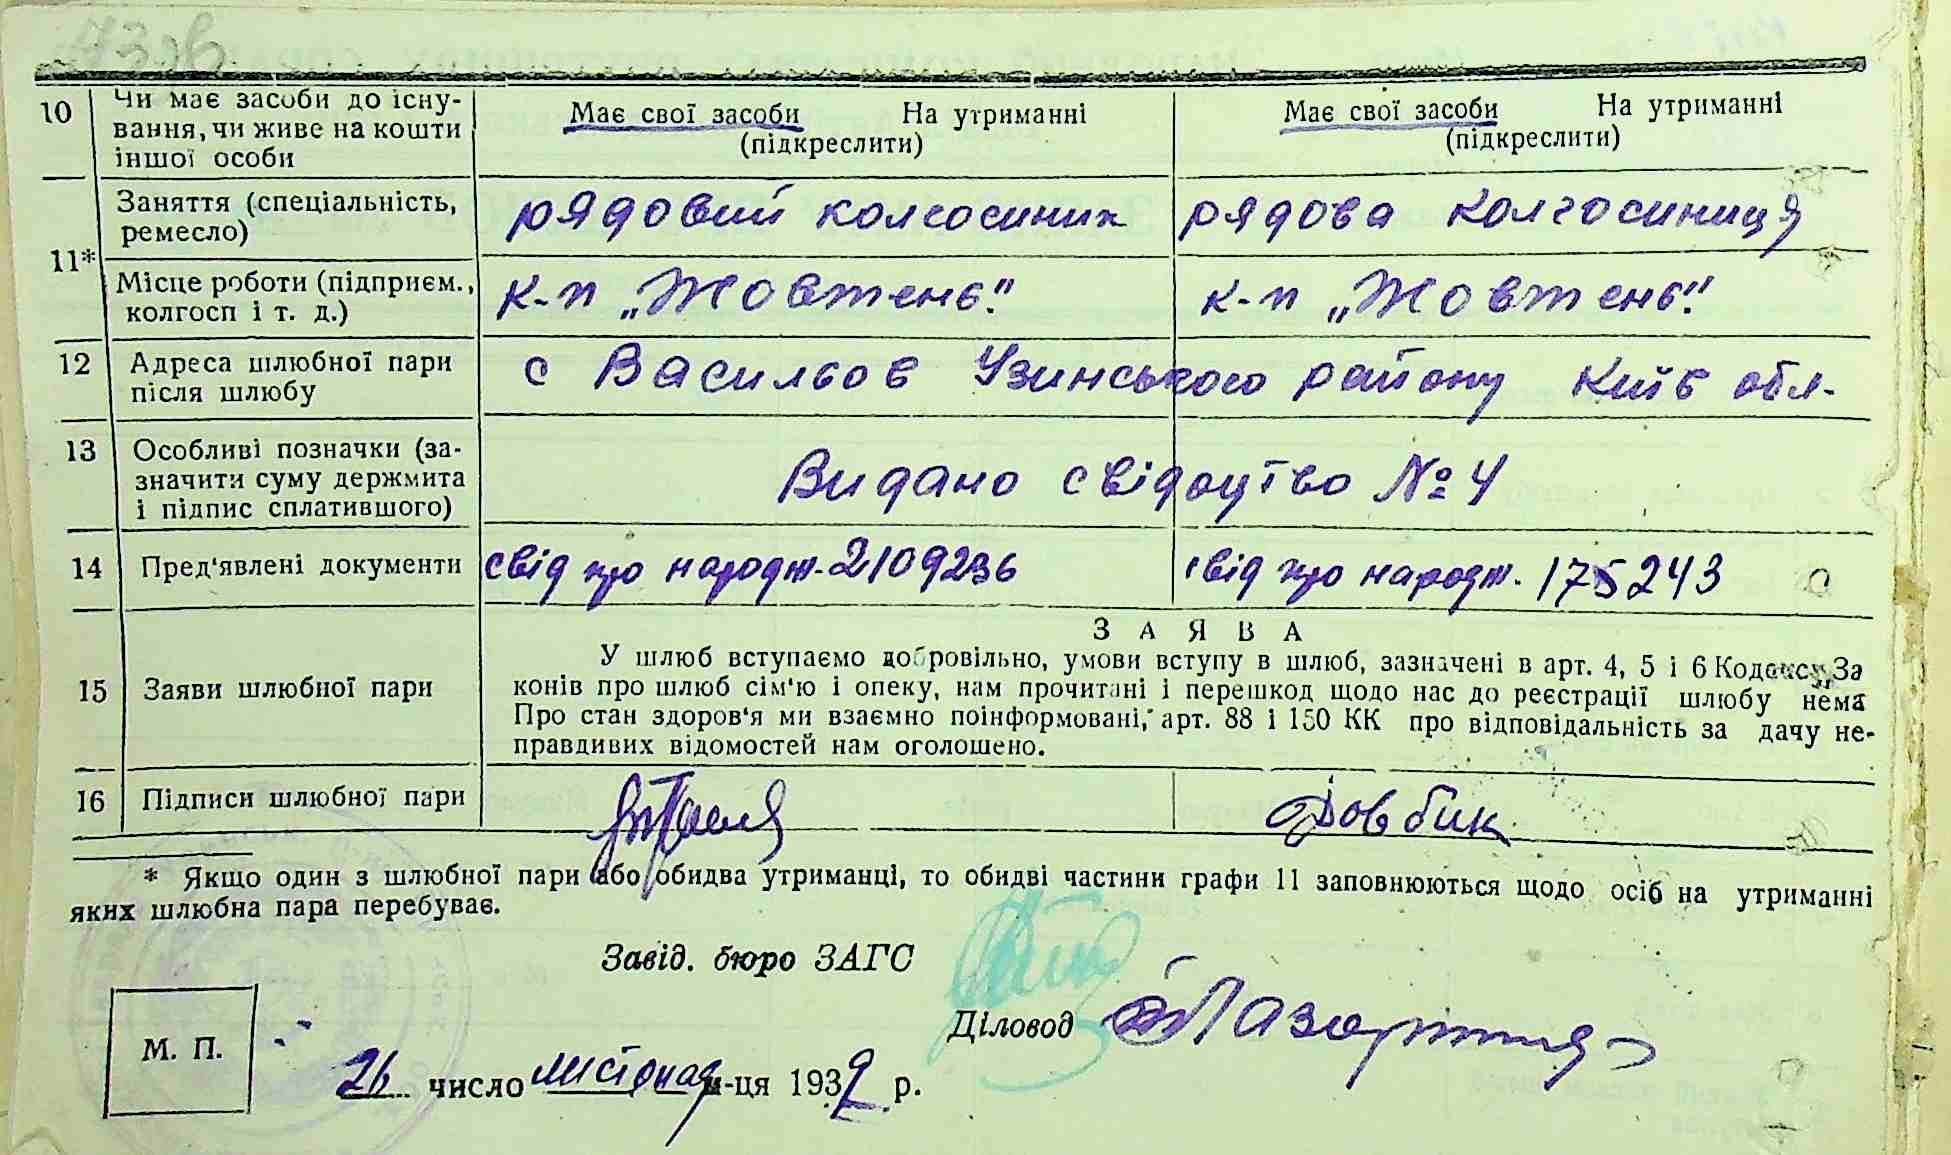 10 Чи має засоби до існу-
вання, чи живе на кошти
іншої особи
Має свої засоби На утриманні
(підкреслити)
Має свої засоби На утриманні
(підкреслити)
11*
Заняття (спеціальність,
ремесло)
рядовий колгоспник
рядова колгоспниця
Місце роботи (підприєм.,
колгосп і т. д.)
к-п „Жовтень"
к-п „Жовтень"
12 Адреса шлюбної пари
після шлюбу
с Васильов Узинського району Київ обл.
13 Особливі позначки (за-
значити суму держмита
і підпис сплатившого)
Видано свідоцтво № 4
14 Пред'явлені документи
свід про народж. 2109236
свід про народж. 175243
ЗАЯВА
15 Заяви шлюбної пари
У шлюб вступаємо добровільно, умови вступу в шлюб, зазначені в арт. 4, 5 і 6 Кодексу „За
конів про шлюб сім'ю і опеку, нам прочитані і перешкод щодо нас до реєстрації шлюбу нема
Про стан здоров'я ми взаємно поінформовані, арт. 88 і 150 КК про відповідальність за дачу не-
правдивих відомостей нам оголошено.
16 Підписи шлюбної пари
Довбик
* Якщо один з шлюбної пари або обидва утриманці, то обидві частини графи 11 заповнюються щодо осіб на утриманні
яких шлюбна пара перебуває.
Завід. бюро ЗАГС
Діловод
М. П.
26 число листопад м-ця 1939 р.